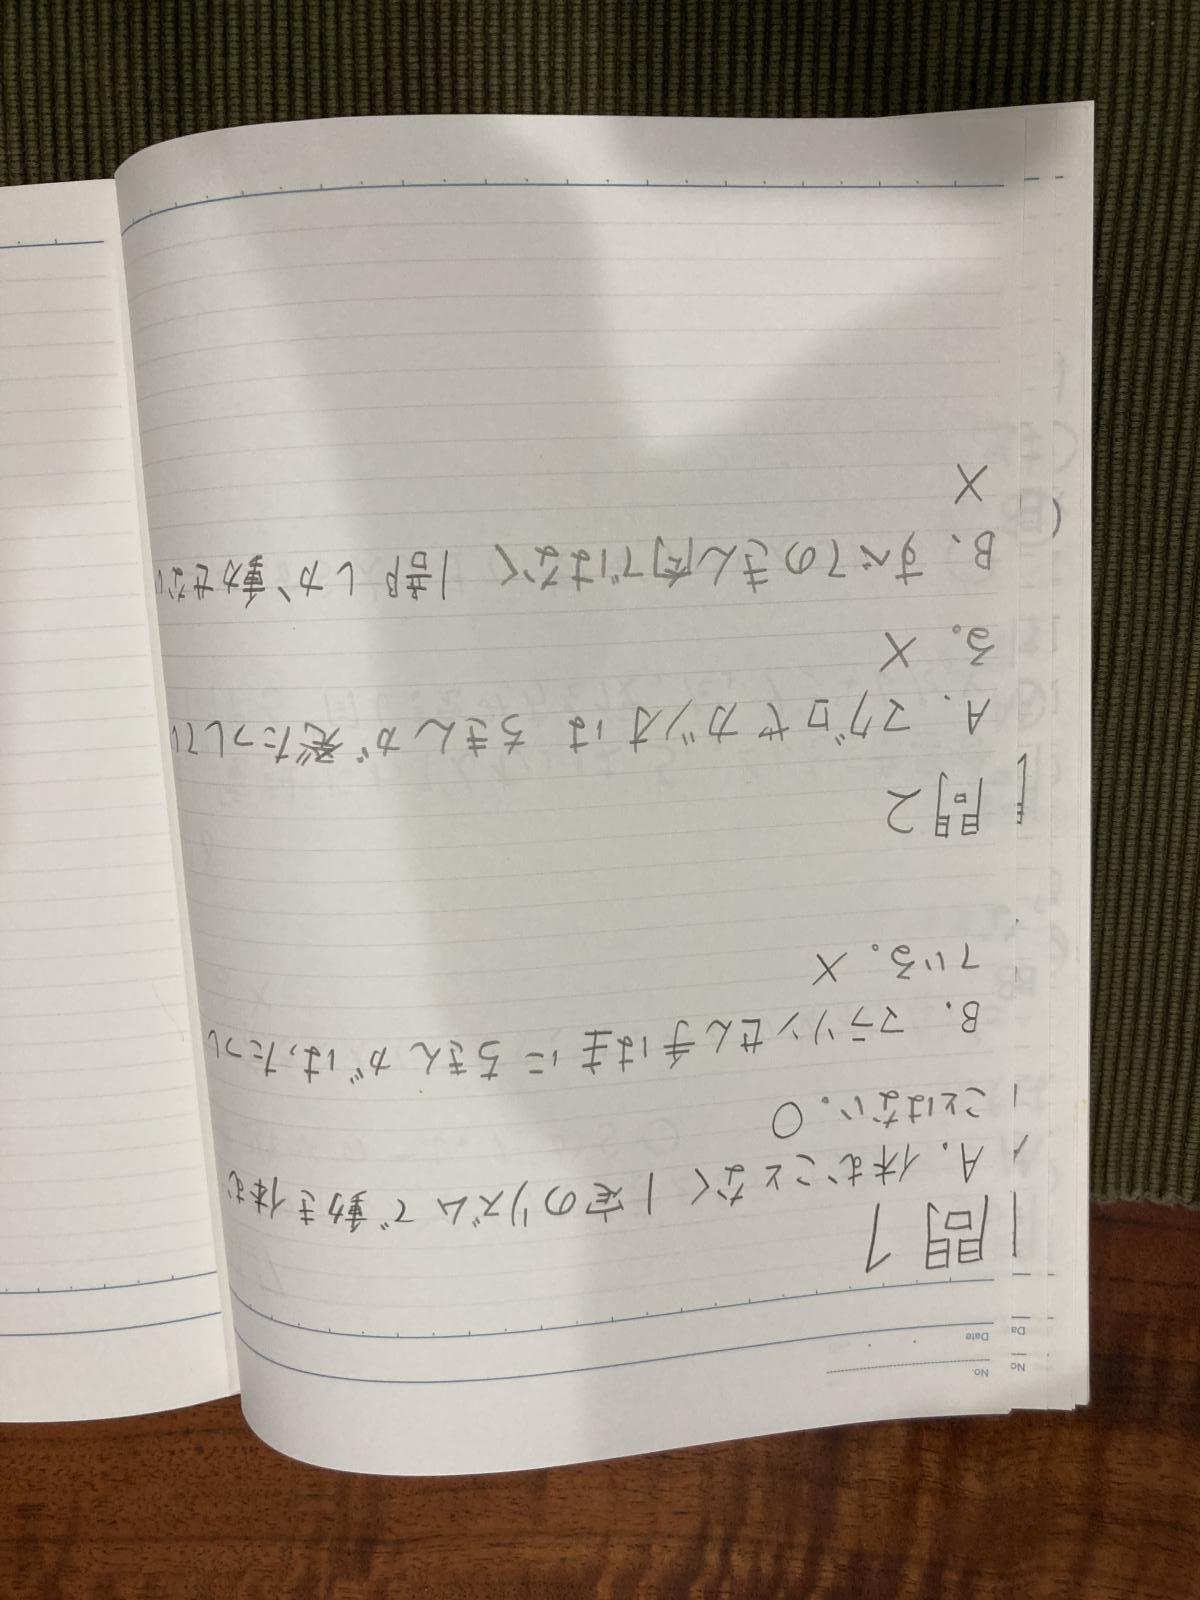 No.
Date
問1
A. 休むことなく1定のリズムで動き休む
ことはない。○
B. マラソンせん手は主にちきんがはったつし
ている。×
問2
A. マグロやカツオはちきんが発たつしてい
る。×
B. すべてのきん肉ではなく1部しか動かせない
×
No
Da